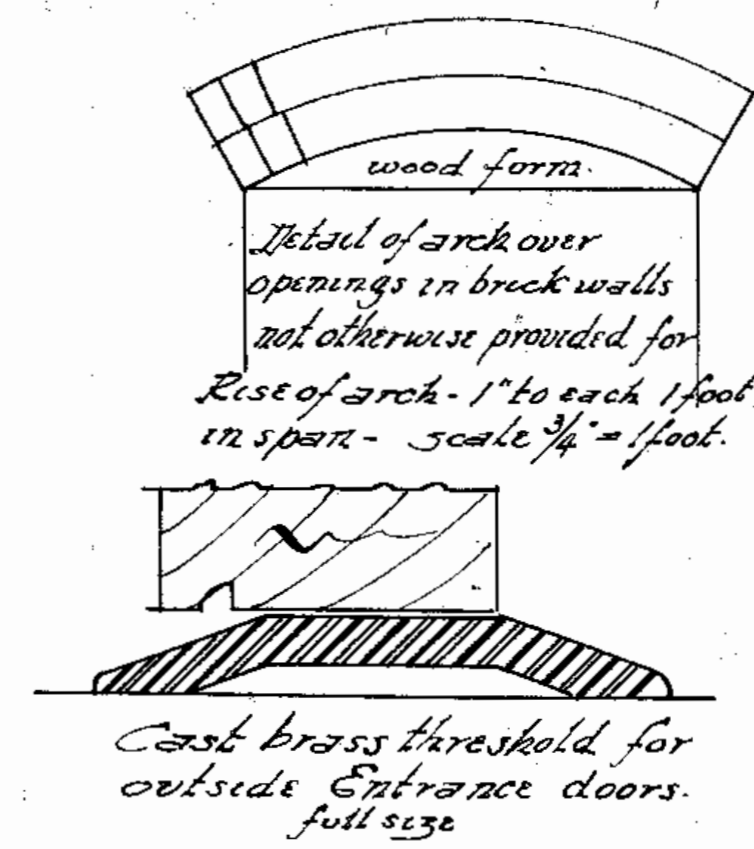 wood form.
Detail of arch over
openings in brick walls
not otherwise provided for
Rise of arch - 1" to each 1 foot
in span - scale 3/4" = 1 foot.
Cast brass threshold for
outside Entrance doors.
full size